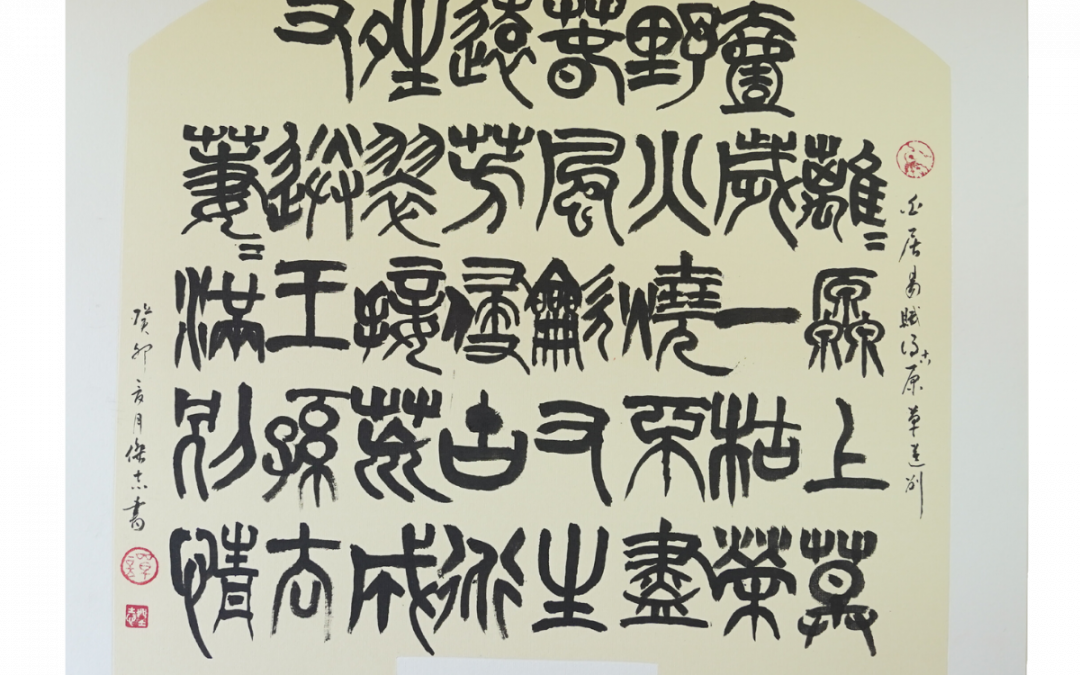 白居易賦得古原草送別
離〻原上草
壹歲一枯榮
野火燒不盡
春風龡又生
遠芳侵古道
夝翠接荒城
又送王孫去
萋〻滿別情
癸卯月傑志書